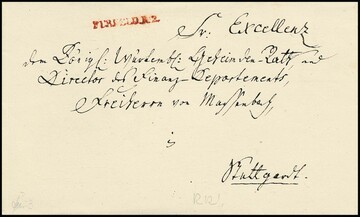 Sr: Excellenz
dem Königl: Würtemb: Geheimden-Rath, und
Director des Finanz-Departements,
Freiherrn von Massenbach,
in
Stuttgardt.